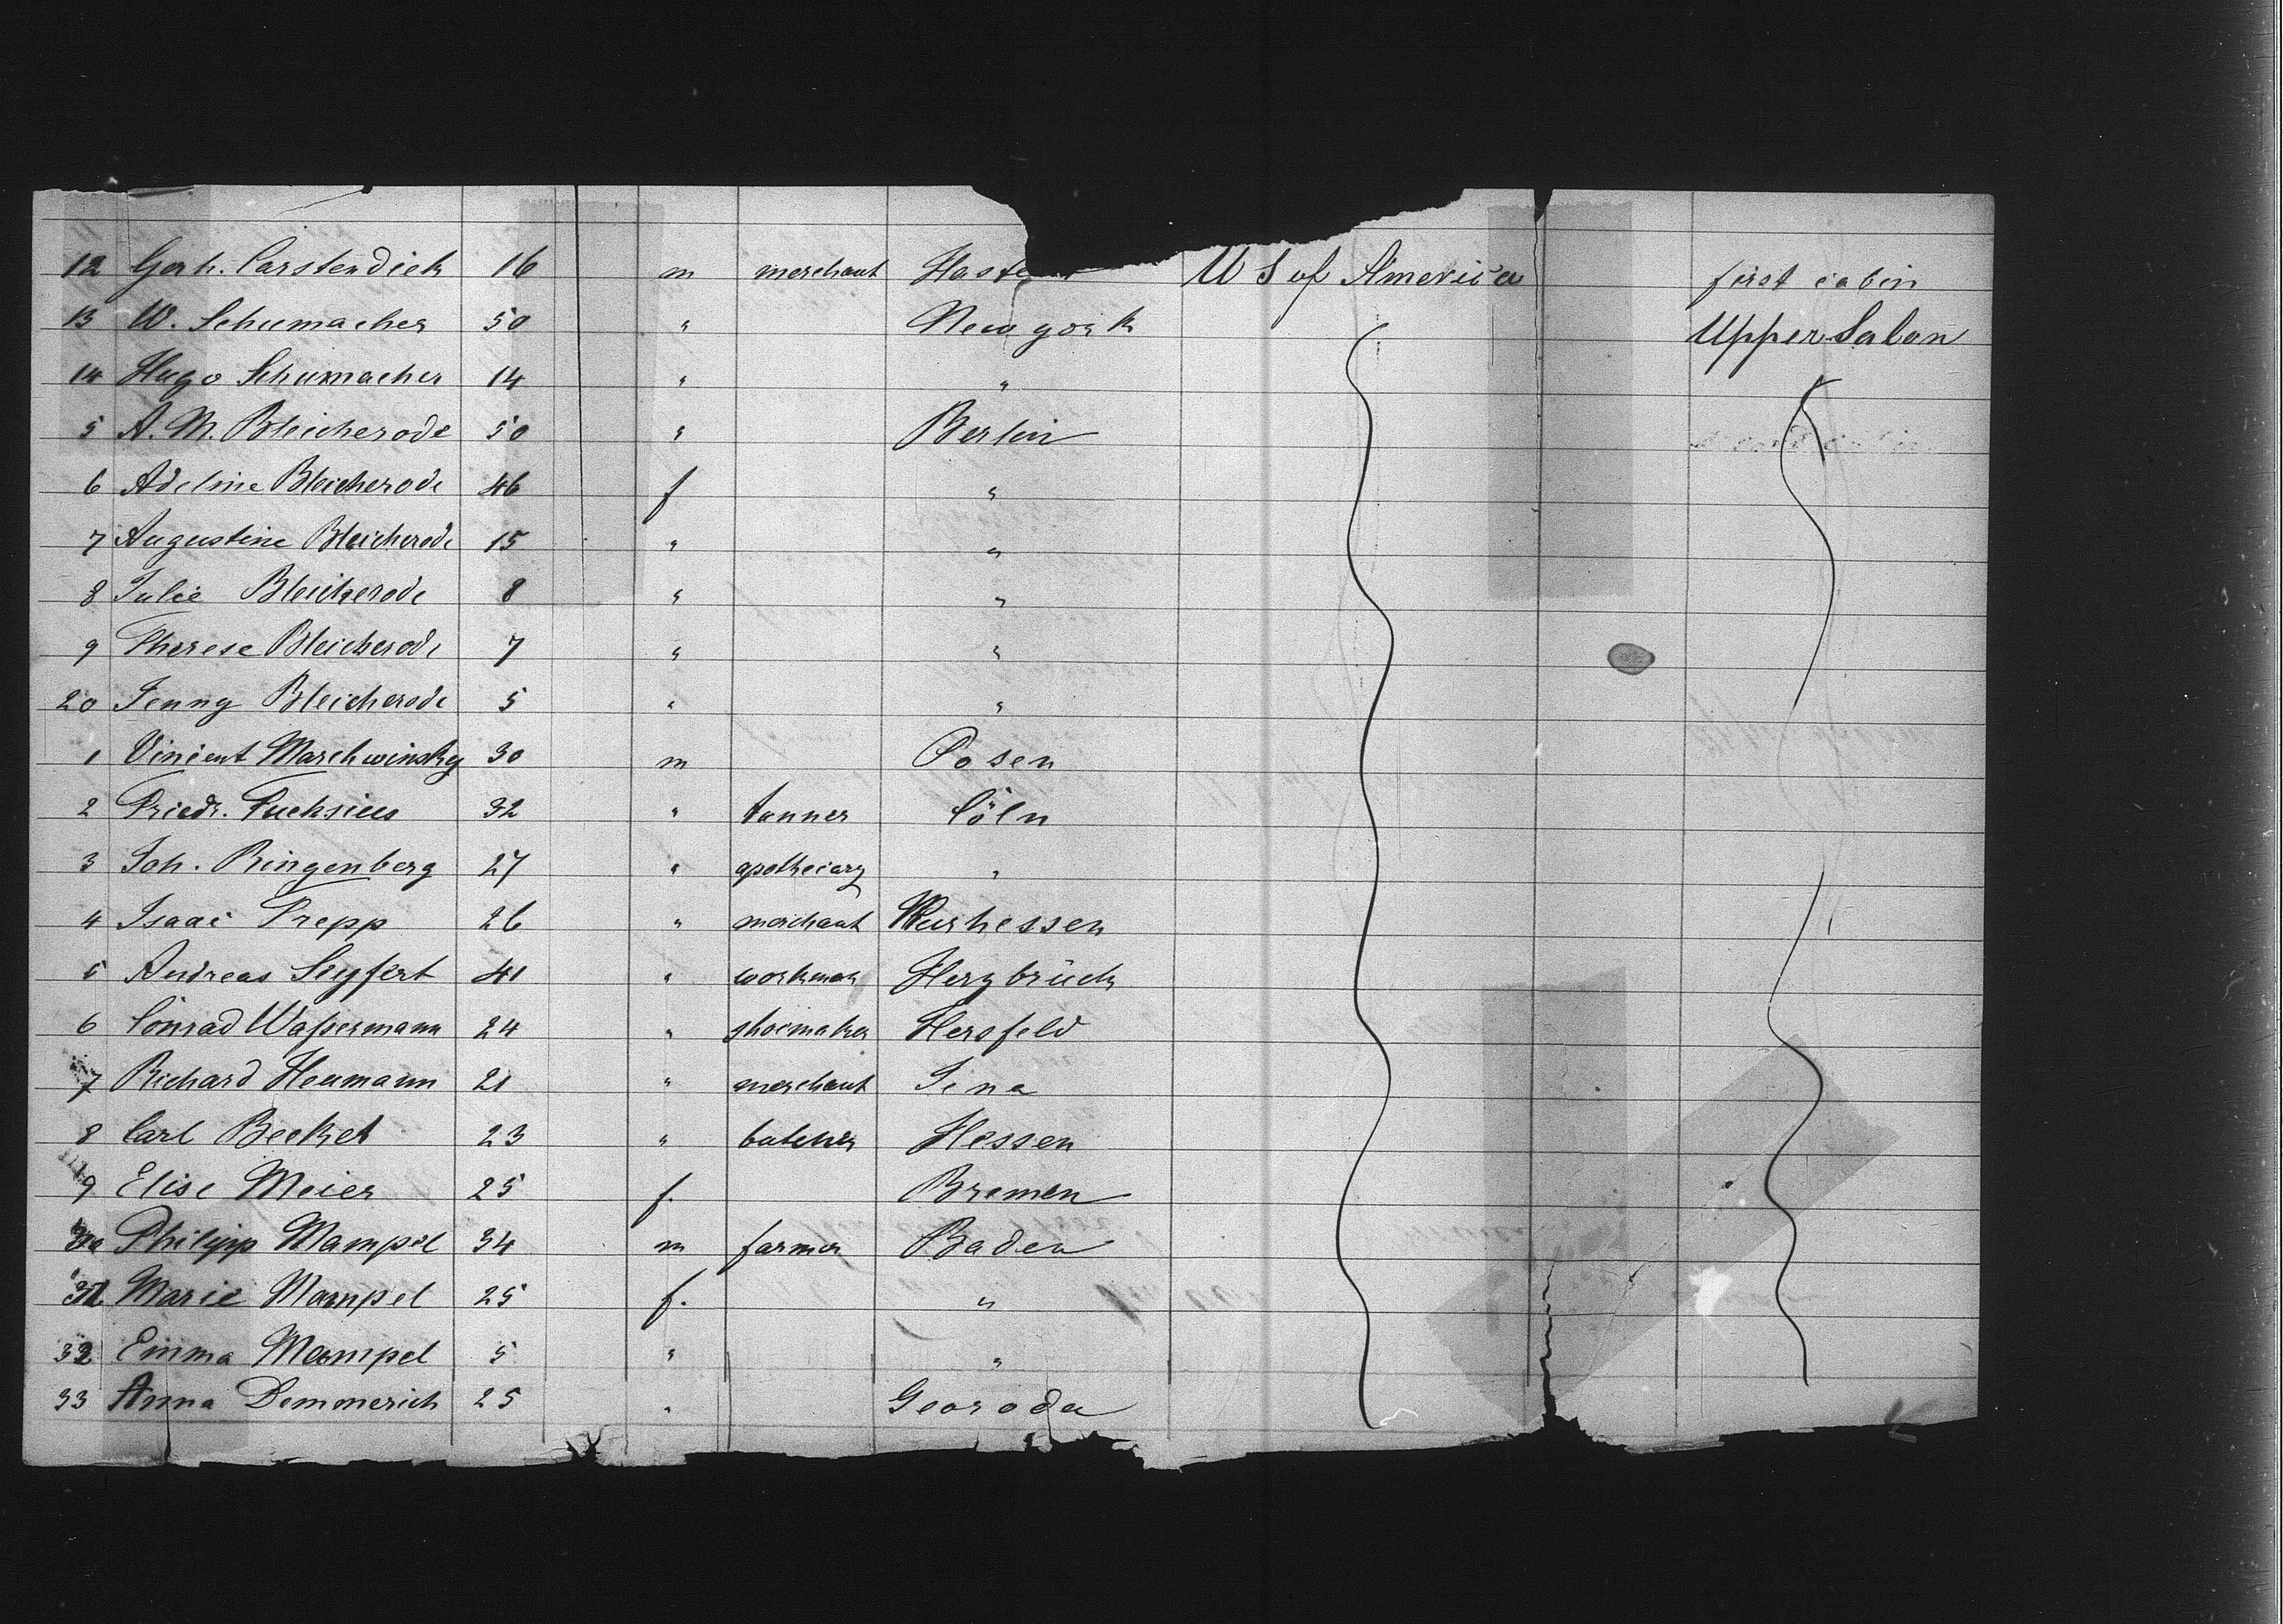 12 Gerh. Carstendiek 16 m merchant Hast U S of America first cabin
13 W. Schumacher 50 " Newyork Upper Salon
14 Hugo Schumacher 14 " "
5 A. M. Bleicherode 50 " Berlin
6 Adeline Bleicherode 46 f "
7 Augustine Bleicherode 15 " "
8 Julie Bleicherode 8 " "
9 Therese Bleicherode 7 " "
20 Jenny Bleicherode 5 " "
1 Vincent Marchwinsky 30 m Posen
2 Friedr. Fuchsius 32 " tanner Cöln
3 Joh. Ringenberg 27 " apothecary "
4 Isaac Trepp 26 " merchant Kurhessen
5 Andreas Seyfert 41 " workman Herzbrück
6 Conrad Waßermann 24 " shoemaker Hersfeld
7 Richard Heumann 21 " merchant Jena
8 Carl Beckel 23 " butcher Hessen
9 Elise Meier 25 f. Bremen
30 Philipp Mampel 34 m farmer Baden
31 Marie Mampel 25 f. "
32 Emma Mampel 5 " "
33 Anna Demmerich 25 " Georoda